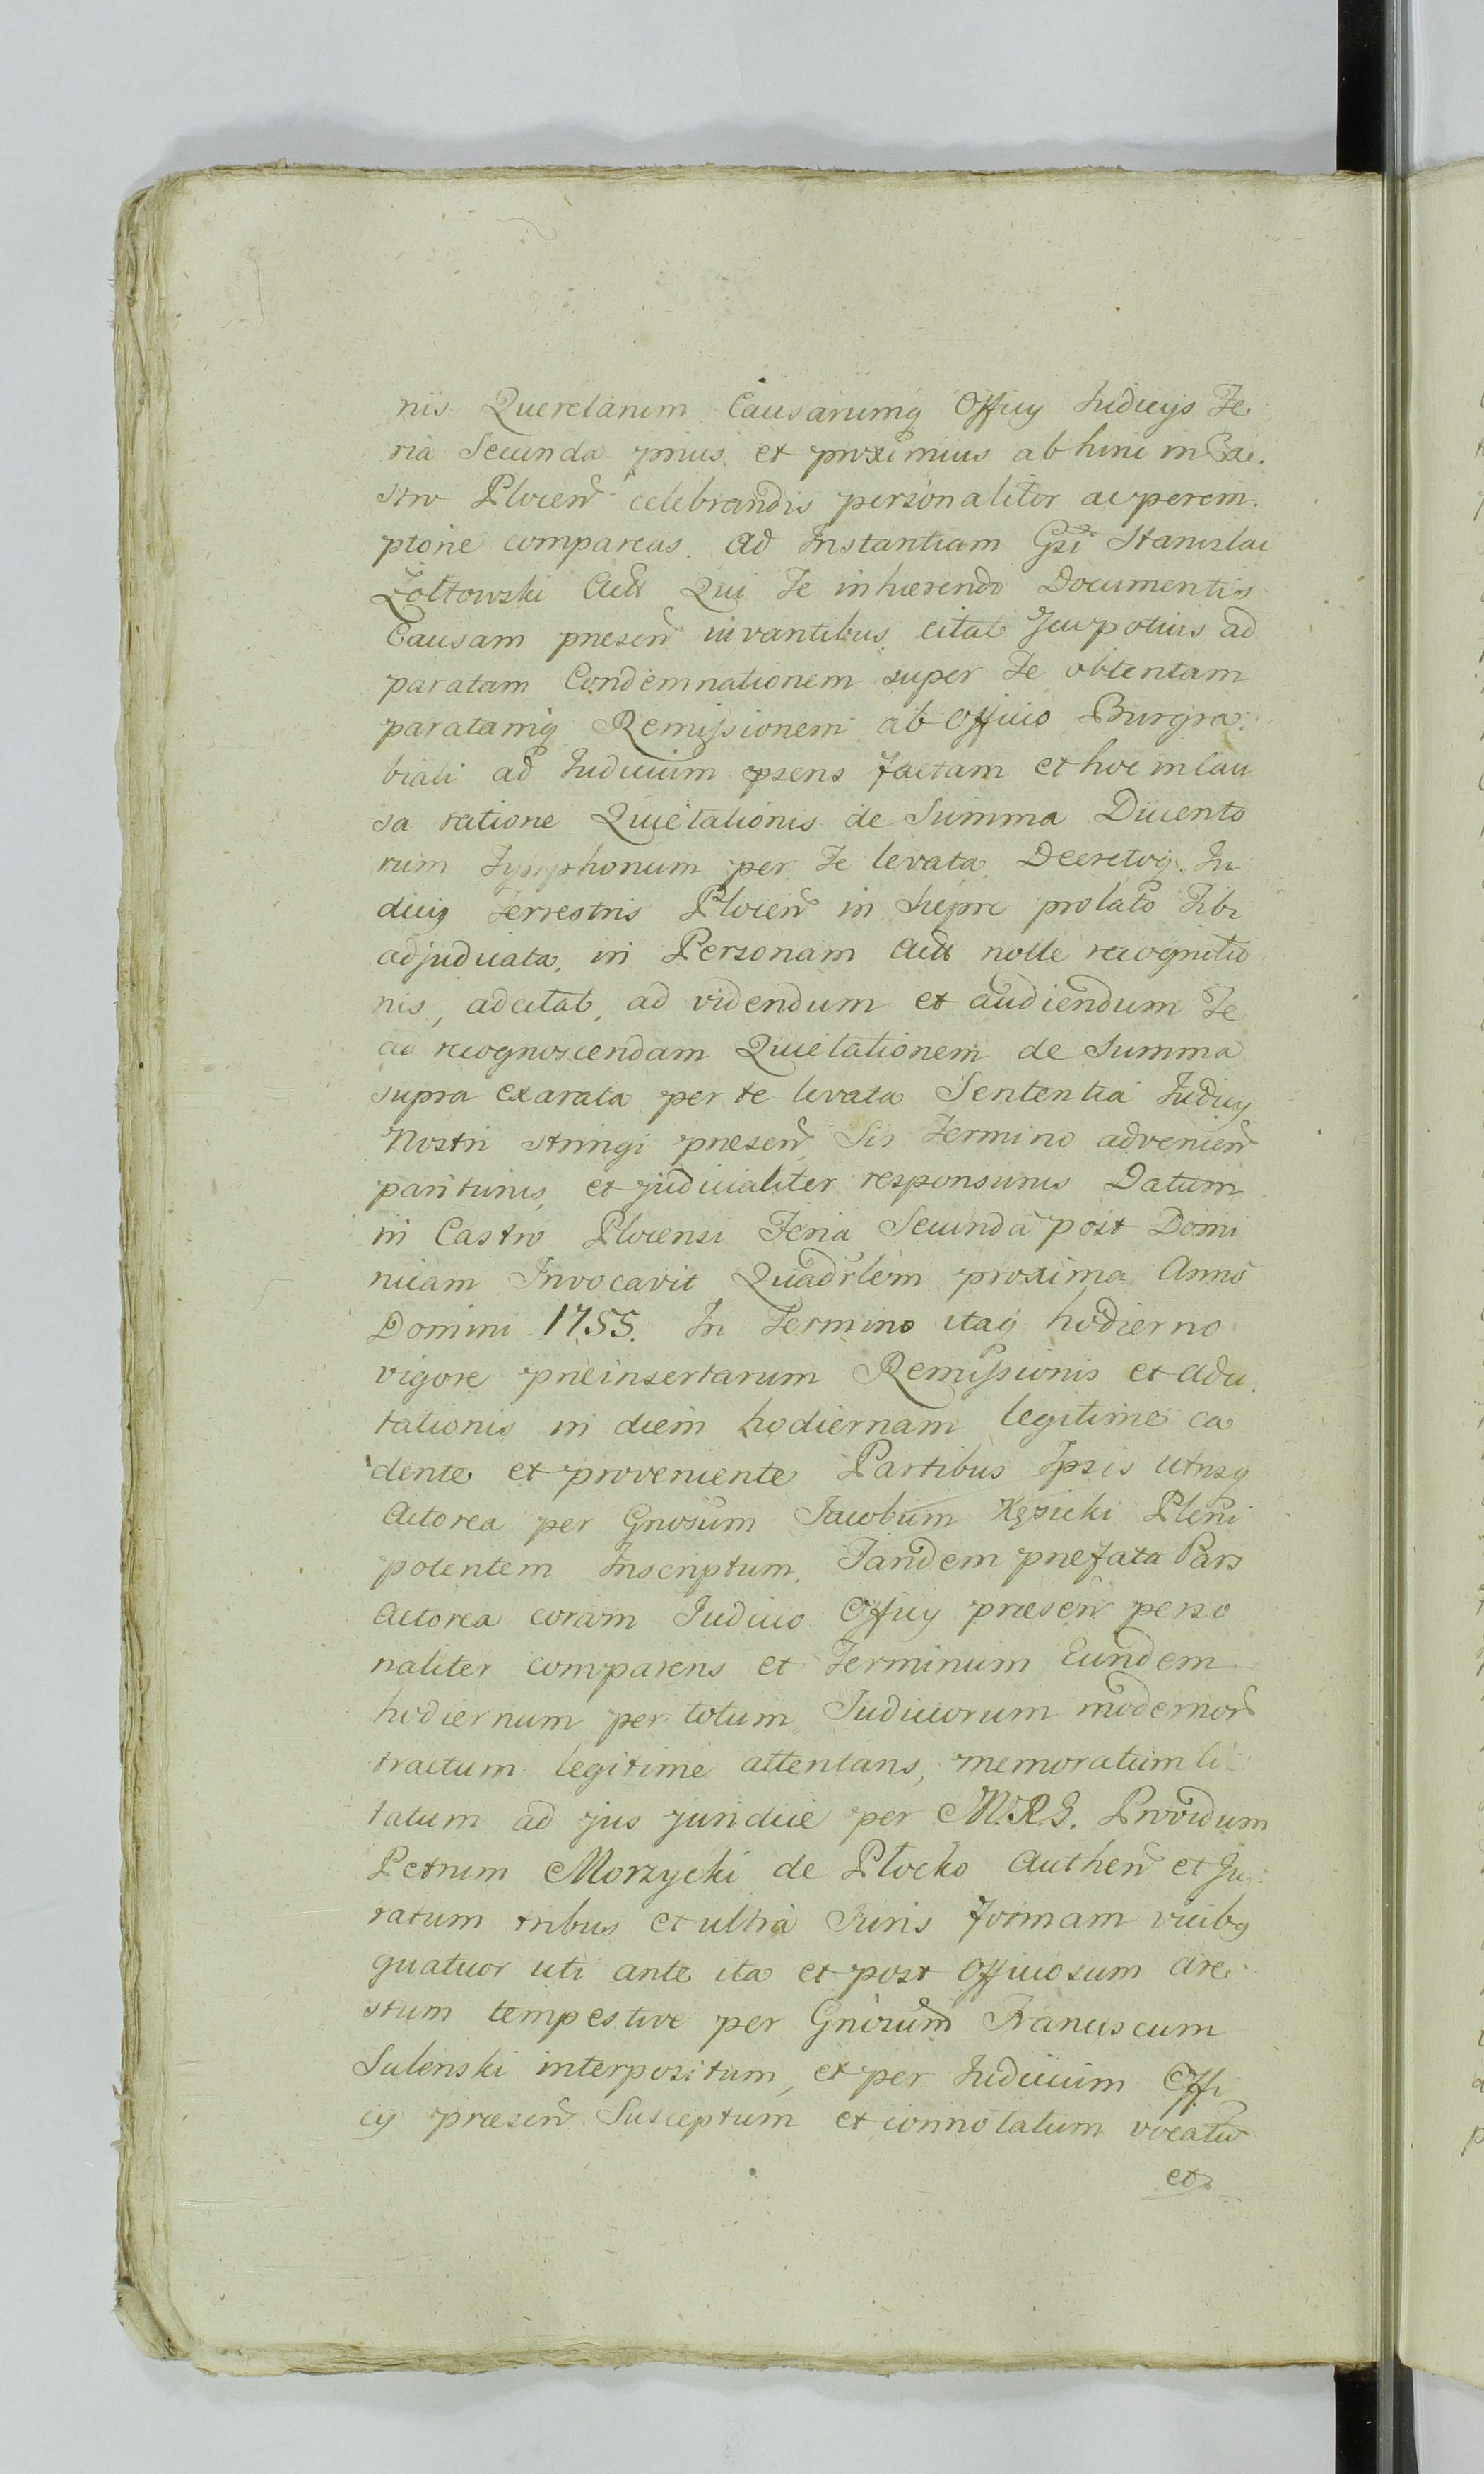 nis Querelarum Causarumq Officy Judicijs Fe
ria Secunda prius et proximius ab hinc in Ca
stro Plocen celebrandis personaliter ac perem
ptorie compareas. Ad Instantiam Gsi Stanislai
Zołtowski Act Qui Te inhærendo Documentis
Causam præsen iuvantibus citat Seu potius ad
paratam Condemnationem super Te obtentam
paratamq Remissionem ab Officio Burgra
biali ad Judicium psens factam et hoc in Cau
sa ratione Quietationis de Summa Ducento
rum Tymphonum per Te levata Decretoq Ju
dicij Terrestris Plocen in Siepre prolato Tibi
adjudicata, in Personam Act nolle recognitio
nis, adcitat, ad videndum et audiendum Te
ad recognoscendam Quietationem de Summa
supra exarata per te levata Sententia Judicy
Nostri stringi præsen Sis Termino advenien
pariturus et judicialiter responsurus Datum
in Castro Plocensi Feria Secunda post Domi
nicam Invocavit Quadrlem proxima Anno
Domini 1755. In Termino itaq hodierno
vigore præinsertarum Remissionis et Adci
tationis in diem hodiernam legitime ca
dente et proveniente Partibus Ipsis utrisq
Actorea per Gnosum Jacobum Kęsicki Pleni
potentem Inscriptum, Tandem præfata Pars
Actorea coram Judicio Officy præsen perso
naliter comparens et Terminum Eundem
hodiernum per totum Judiciorum modernor
tractum legitime attentans, memoratum Ci
tatum ad jus juridice per M.R.G. Providum
Petrum Morzycki de Płocko Authen et Ju
ratum tribus et ultra Juris formam vicibq
quatuor uti ante ita et post Officiosum Are
stum tempestive per Gnosum Franciscum
Sulenski interpositum, et per Judicium Offi
cy præsen Susceptum et connotatum vocatu
et